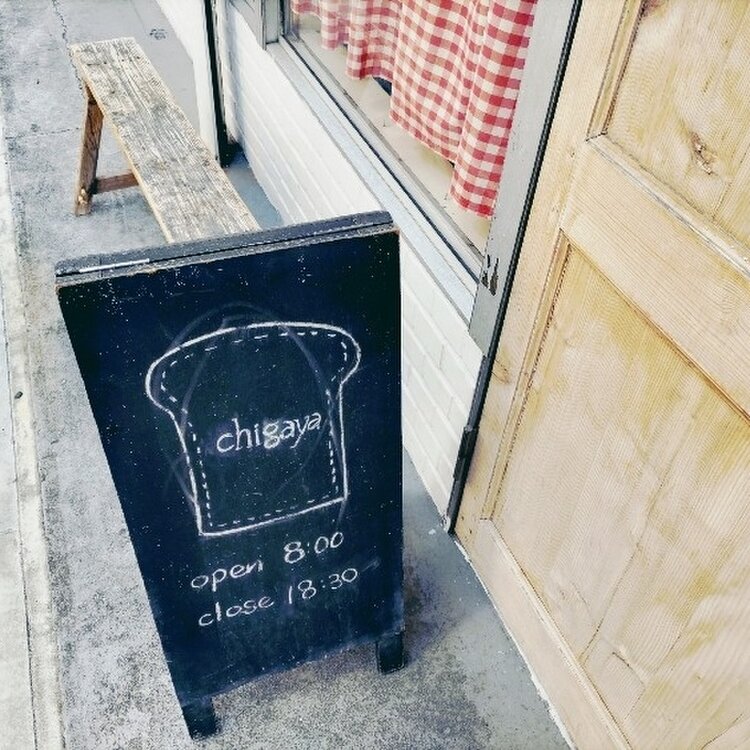 chigaya
open 8:00
close 18:30